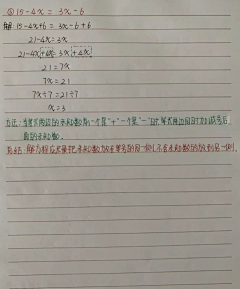 ③15-4x = 3x-6
解:15-4x+6 = 3x-6+6
21-4x=3x
21-4x+4x=3x+4x
21=7x
7x=21
7x÷7=21÷7
x=3
方法:当等式两边的未知数前一个是"+"一个是"-"时,等式两边同时加减号后
面的未知数。
总结:解方程应尽量把未知数放在等号的同一侧,不含未知数的放到另一侧。